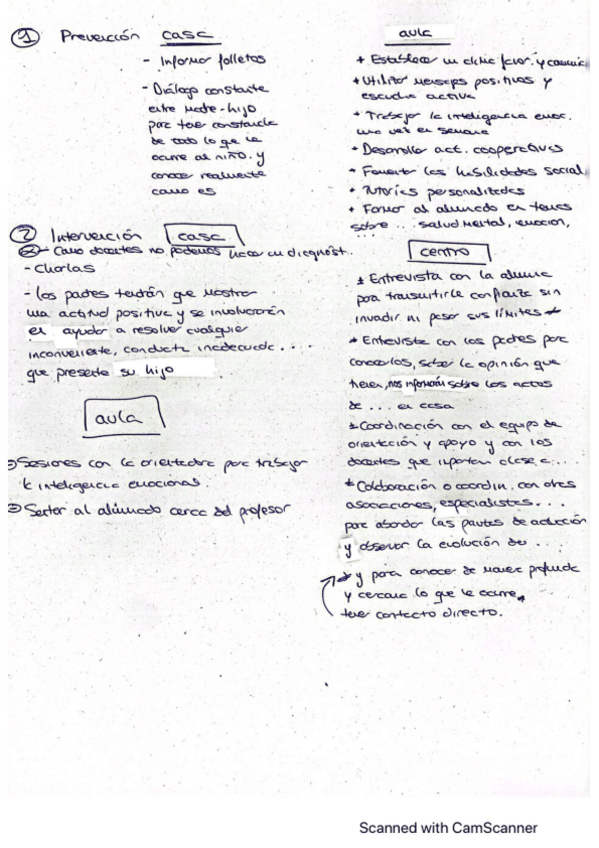 ① Prevención casa
- Informar folletos
- Diálogo constante
entre madre-hijo
para tener constancia
de todo lo que le
ocurre al niño. y
conocer realmente
como es
aula
+ Establecer un clima favor. y
+ Utilizar mensajes positivos y
escucha activa
+ Trabajar la inteligencia emoc.
una vez en semana
+ Desarrollo act. cooperativas
+ Fomentar las habilidades social
+ Tutorías personalizadas
+ Formar al alumnado en temas
sobre ... salud mental, emoción,
② Intervención casa
Como docentes no podemos hacer un diagnóst.
- Charlas
- Los padres tendrán que mostrar
una actitud positiva y se involucrarán
en ayudar a resolver cualquier
inconveniente, conducta inadecuada....
que presente su hijo
aula
Sesiones con la orientadora para trabajar
inteligencia emocional.
Sentar al alumnado cerca del profesor
centro
* Entrevista con la alumna
para transmitirle confianza sin
invadir ni pasar sus límites
* Entrevista con los padres para
conocerlos, saber la opinión que
tienen, nos informan sobre los actos
de ... en casa
* Coordinación con el equipo de
orientación y apoyo y con los
docentes que imparten clase a...
* Colaboración o coordin. con otras
asociaciones, especialistas...
para abordar las pautas de actuación
y observar la evolución de ...
* y para conocer de manera profunda
y cercana lo que le ocurre,
tener contacto directo.
Scanned with CamScanner